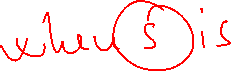 when s is